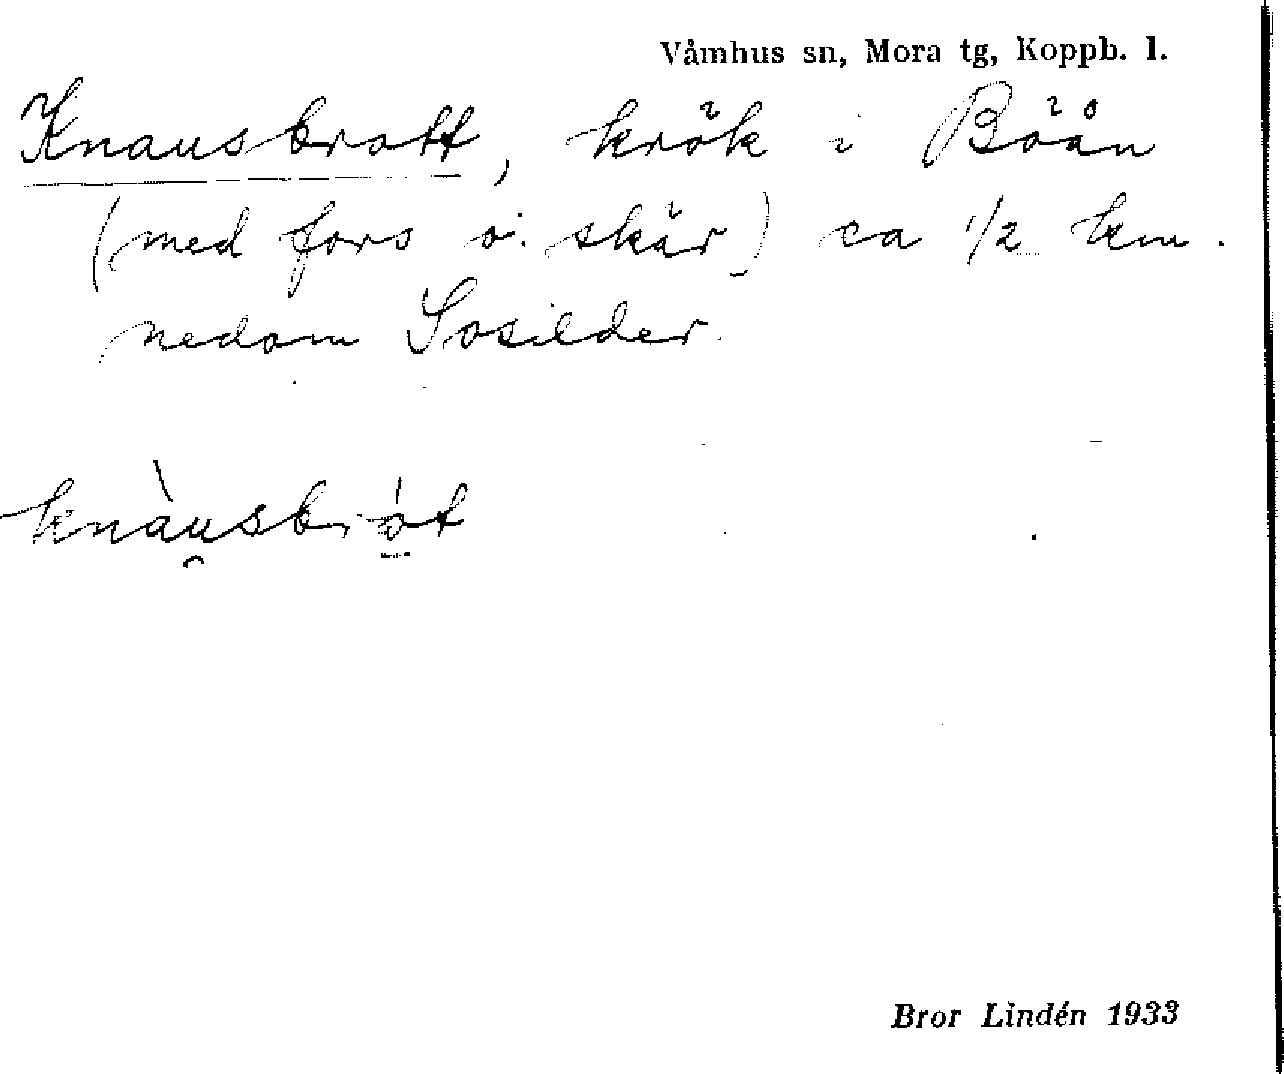 Våmhus sn, Mora tg, Koppb. l.
Knausbrott, krök i Böån
(med fors o. skär) ca 1/2 km.
nedom Sosilder.
knàu̯sbrót
Bror Lindén 1933